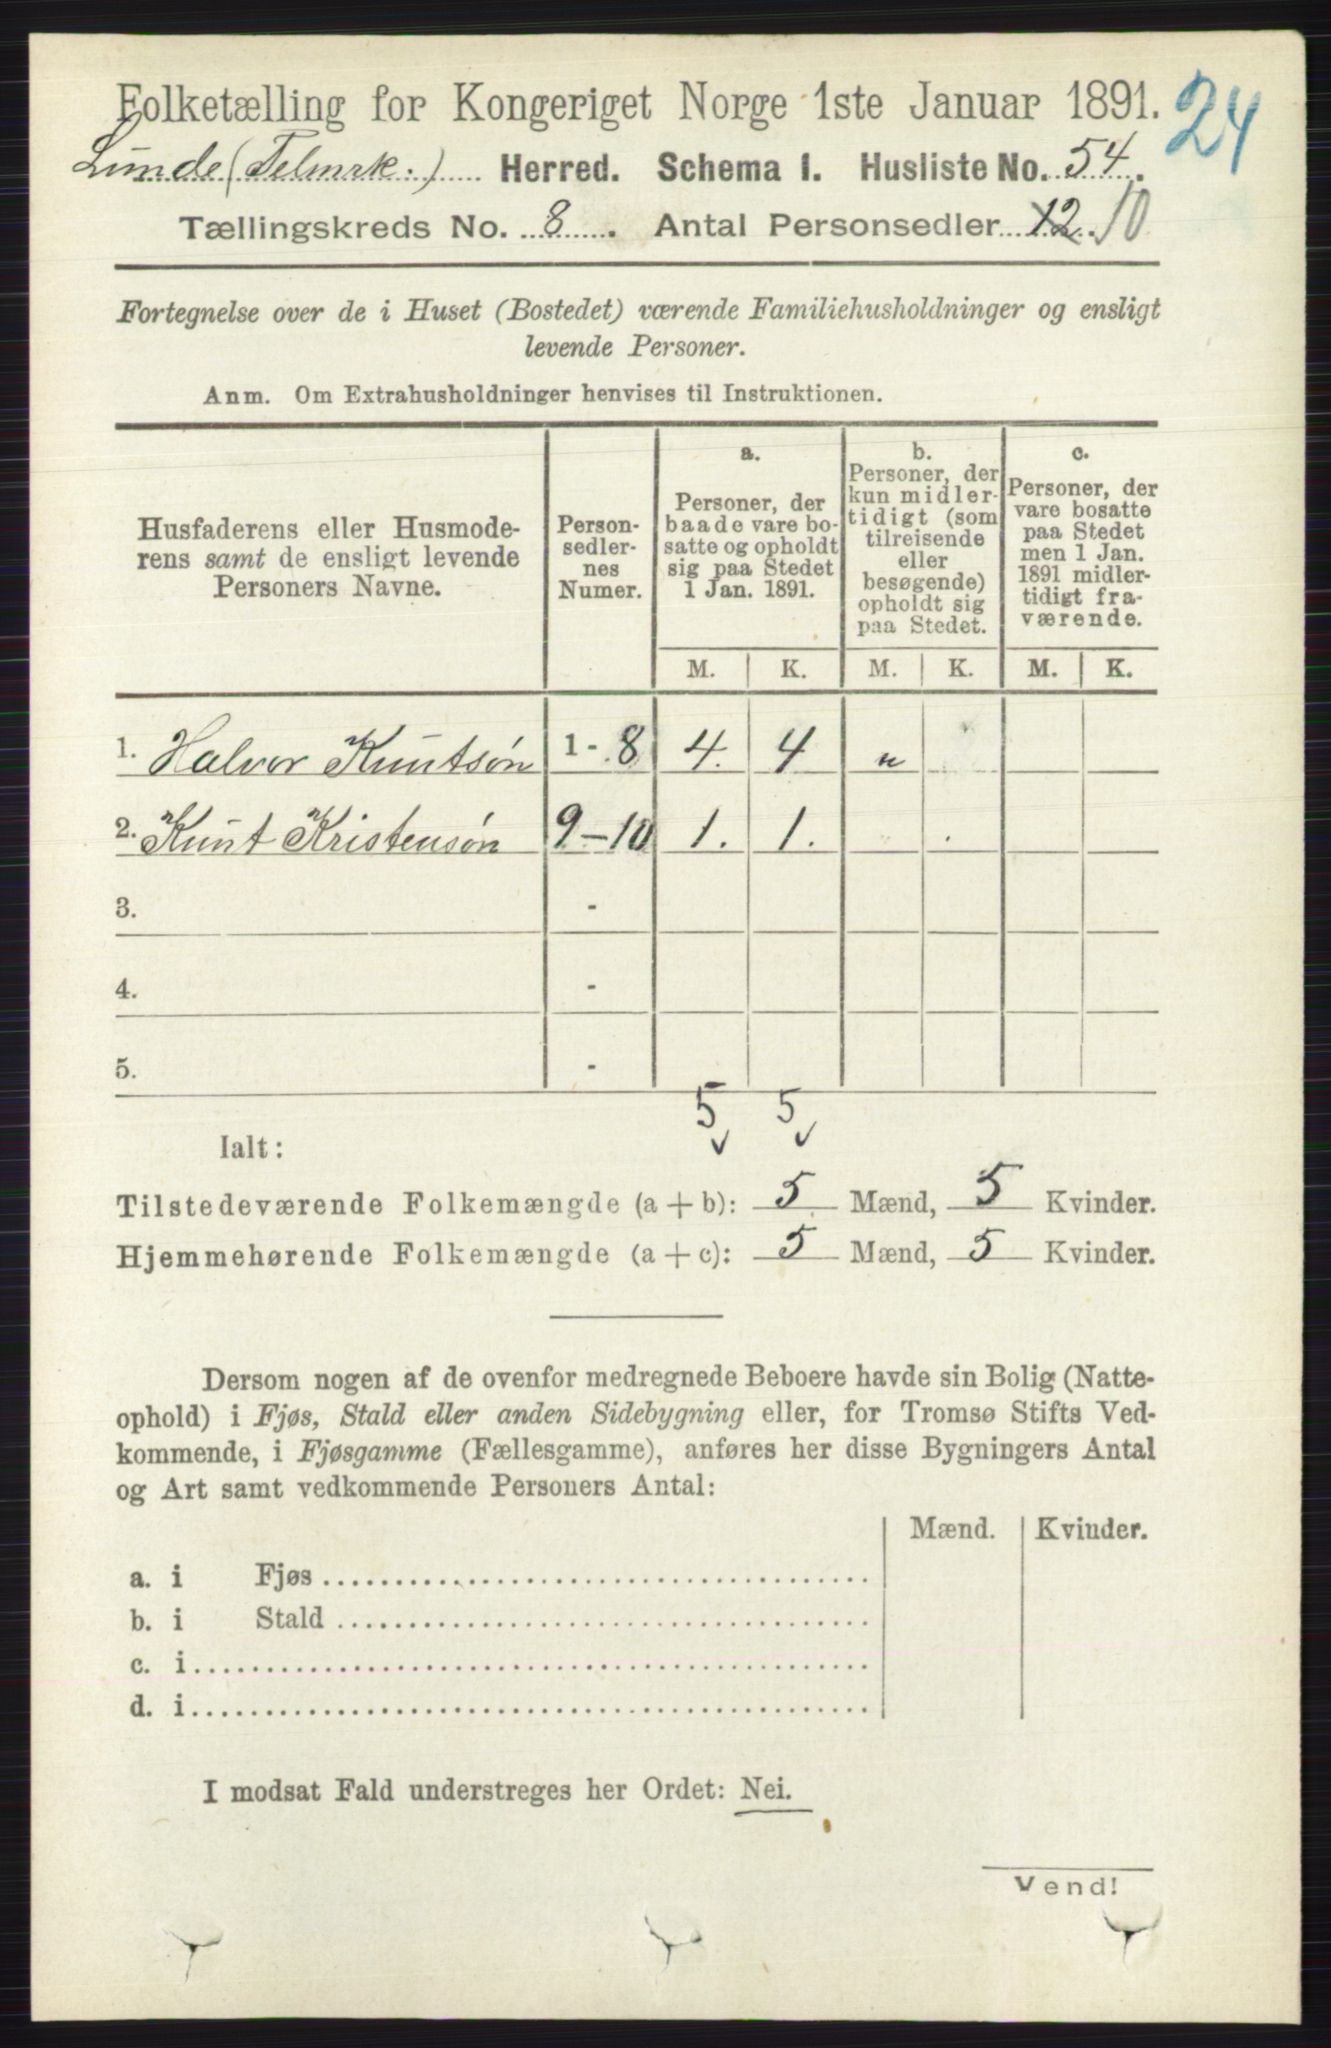 Folketælling for Kongeriget Norge 1ste Januar 1891. 24
Lunde (Telmrk.) Herred. Schema 1. Husliste No. 54.
Tællingskreds No. 8. Antal Personsedler 12. 10
Fortegnelse over de i Huset (Bostedet) værende Familiehusholdninger og ensligt
levende Personer.
Anm. Om Extrahusholdninger henvises til Instruktionen.
Husfaderens eller Husmode-
rens samt de ensligt levende
Personers Navne.
Person-
sedler-
nes
Numer.
a.
Personer, der
baade vare bo-
satte og opholdt
sig paa Stedet
1 Jan. 1891.
b.
Personer, der
kun midler-
tidigt (som
tilreisende
eller
besøgende)
opholdt sig
paa Stedet.
c.
Personer, der
vare bosatte
paa Stedet
men 1 Jan.
1891 midler-
tidigt fra-
værende.
M. K. M. K. M. K.
1. Halvor Knutsøn 1 - 8 4. 4 "
2. Knut Kristensøn 9-10 1. 1.
3. -
4. -
5. -
5 5
Ialt: ✓ ✓
Tilstedeværende Folkemængde (a + b): 5 Mænd, 5 Kvinder.
Hjemmehørende Folkemængde (a + c): 5 Mænd, 5 Kvinder.
Dersom nogen af de ovenfor medregnede Beboere havde sin Bolig (Natte-
ophold) i Fjøs, Stald eller anden Sidebygning eller, for Tromsø Stifts Ved-
kommende, i Fjøsgamme (Fællesgamme), anføres her disse Bygningers Antal
og Art samt vedkommende Personers Antal:
Mænd. Kvinder.
a. i Fjøs
b. i Stald
c. i
d. i
I modsat Fald understreges her Ordet: Nei.
Vend!